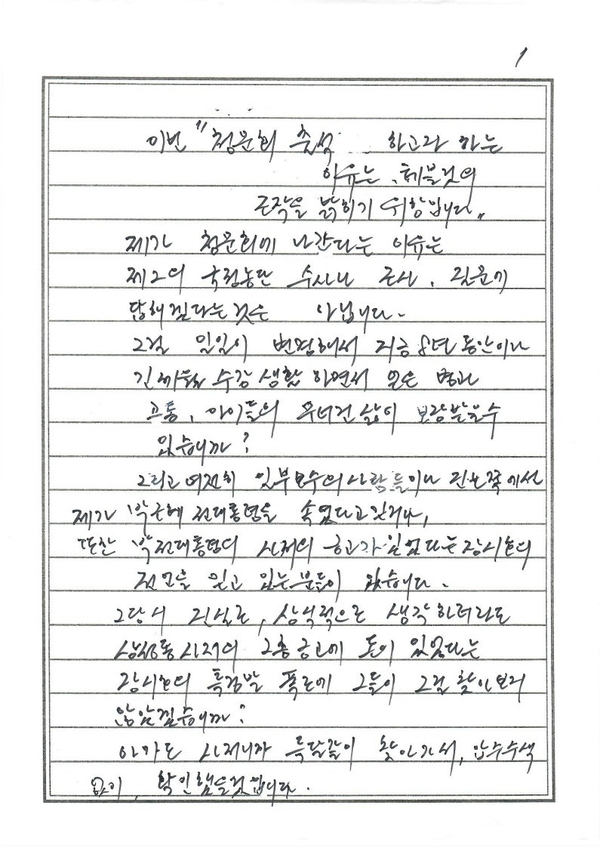 1
이번 "청문회 출석 하고자 하는
이유는, 태블릿의
조작을 밝히기 위함입니다"
제가 청문회에 나간다는 이유는
제2의 국정농단 수사나 조사, 질문에
답해진다는것은 아닙니다.
그걸 일일이 변명해서 지금 8년 동안이나
긴 세월 수감 생활 하면서 얻은 병과
고통, 아이들의 무너진 삶이 보상받을수
있습니까?
그리고 여전히 일부 보수의 사람들이나 진보쪽에선
제가 박근혜 전대통령을 속였다고 믿거나,
또한 박전대통령의 사저의 금고가 있었다는 장시호의
전언을 믿고 있는 분들이 있습니다.
그당시 진실로, 상식적으로 생각하더라도
삼성동 사저의 2층 금고에 돈이 있었다는
장시호의 특검발 폭로에 그들이 그걸 찾아보지
않았겠습니까?
아마도 사저니까 득달같이 찾아가서, 압수수색
하고, 확인했을것입니다.